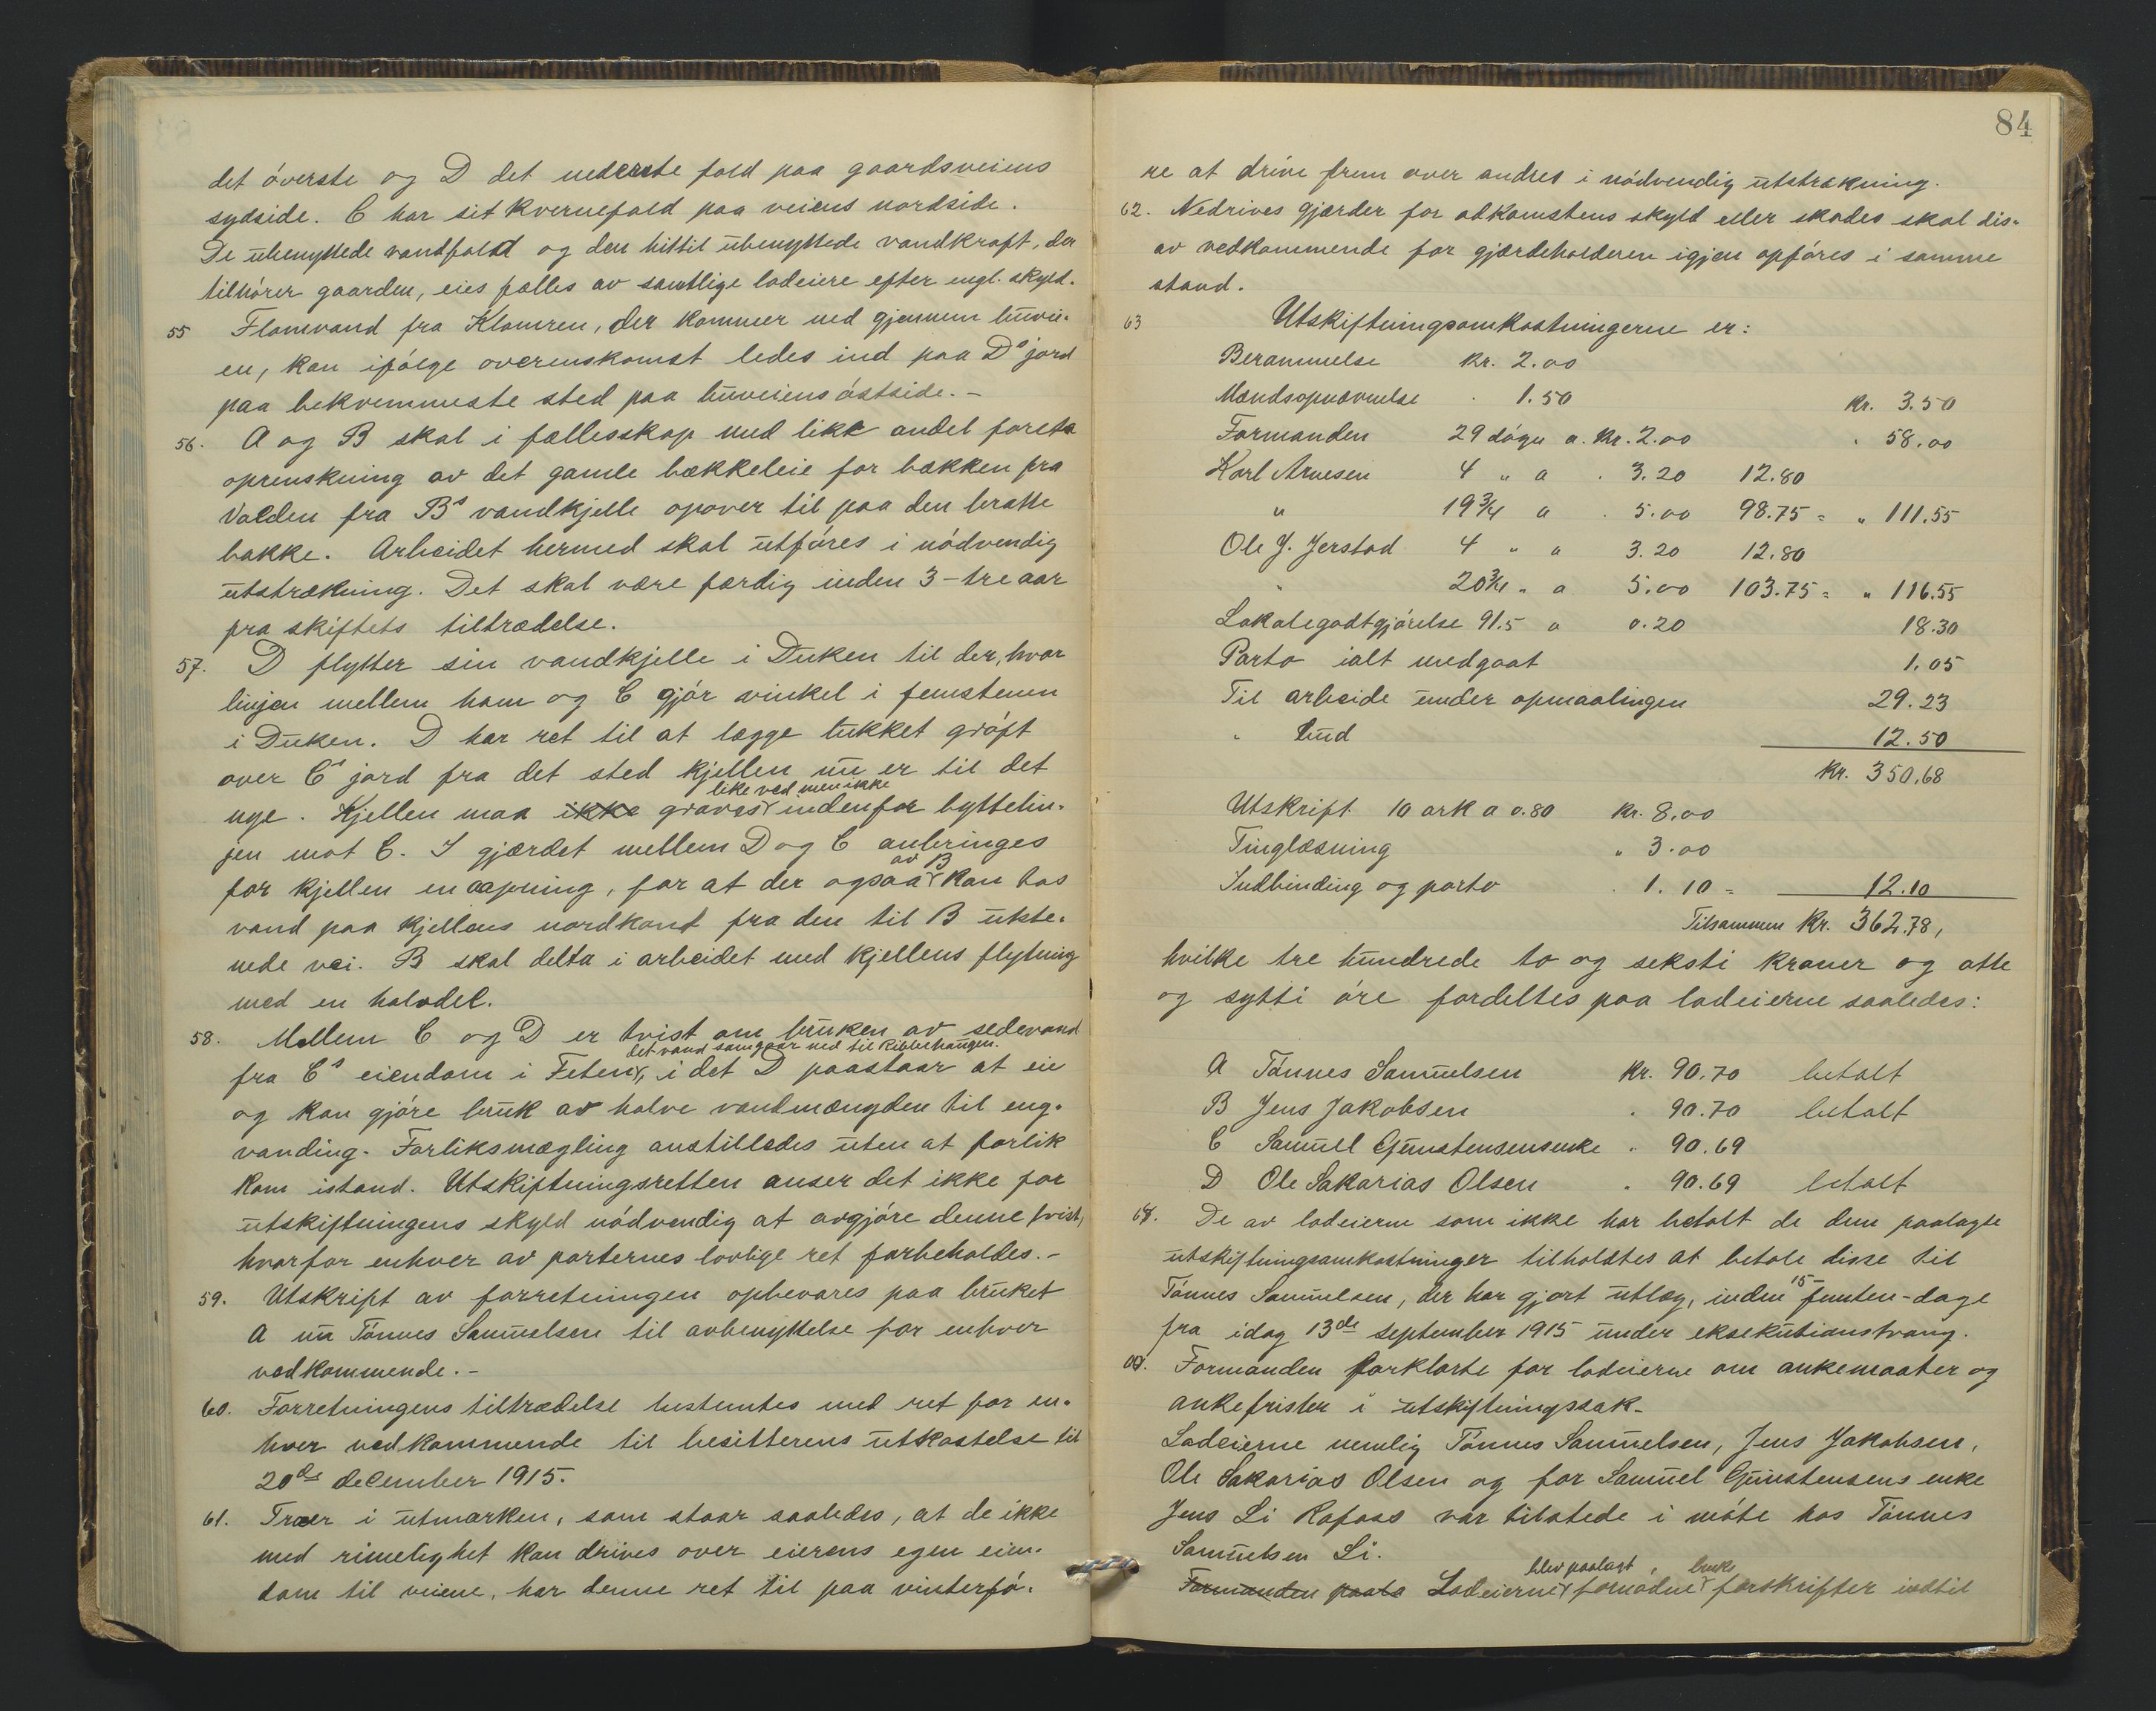 det överste og D det nederste fald paa gaardsveiens
sydside. C har sit kvernefald paa veiens nordside.
De ubenyttede vandfald og den hittil ubenyttede vandkraft, der
tilhörer gaarden, eies fælles av samtlige lodeiere efter engl. skyld.
55 Flomvand fra Klomren, der kommer ned gjennem buvei-
en, kan ifölge overenskomst ledes ind paa Ds jord
paa bekvemmeste sted paa buveiens östside. -
56. A og B skal i fællesskap med likk andel foreta
oprenskning av det gamle bækkeleie for bækken fra
Valden fra Bs vandkjelle opover til paa den bratte
bakke. Arbeidet hermed skal utföres i nödvendig
utstrækning. Det skal være færdig inden 3 - tre aar
fra skiftets tiltrædelse.
57. D flytter sin vandkjelle i Duken til der, hvor
linjen mellem ham og C gjör vinkel i femstenen
i Duken. D har ret til at lægge lukket gröft
over Cs jord fra det sted kjellen nu er til det
like ved men ikke
nye. Kjellen maa ikke graves indenfor byttelin-
jen mot C. I gjærdet mellem D og C anbringes
av B
for kjellen en aapning, for at der ogsaa kan tas
vand paa kjellens nordkant fra den til B utste-
nede vei. B skal delta i arbeidet med kjellens flytning
med en halvdel.
58. Mellem C og D er tvist om bruken av sedevand
det vand som gaar ned til Kibbehaugen.
fra Cs eiendom i Feten, i det D paastaar at eie
og kan gjöre bruk av halve vandmængden til eng-
vanding. Forliksmægling anstilledes uten at forlik
kom istand. Utskiftningsretten anser det ikke for
utskiftningens skyld nödvendig at avgjöre denne tvist,
hvorfor enhver av parternes lovlige ret forbeholdes. -
59. Utskript av forretningen opbevares paa bruket
A nu Tönnes Samuelsen til avbenyttelse for enhver
vedkommende. -
60. Forretningens tiltrædelse bestemtes med ret for en-
hver vedkommende til besitterens utkastelse til
20de december 1915.
61. Træer i utmarken, som staar saaledes, at de ikke
med rimelighet kan drives over eierens egen eien-
dom til veiene, har denne ret til paa vinterfö-
84
re at drive frem over andres i nödvendig utstrækning.
62. Nedrives gjærder for adkomstens skyld eller skades skal dis-
av vedkommende for gjærdeholderen igjen opföres i samme
stand.
63 Utskiftningsomkostningerne er:
Berammelse kr. 2.00
Mandsopnævnelse 1.50 kr. 3.50
Formanden 29 dögn a. kr. 2.00 58.00
Karl Arnesen 4 " a 3.20 12.80
" 19 3/4 a 5.00 98.75 = " 111.55
Ole J. Jerstad 4 " a 3.20 12.80
" 20 3/4 " a 5.00 103.75 = " 116.55
Lokalegodtgjörelse 91.5 a 0.20 18.30
Porto ialt medgaat 1.05
Til arbeide under opmaalingen 29.23
" bud 12.50
kr. 350.68
Utskript 10 ark a 0.80 kr. 8.00
Tinglæsning " 3.00
Indbinding og porto 1.10 = 12.10
Tilsammen kr. 362.78,
hvilke tre hundrede to og seksti kroner og otte
og sytti öre fordeltes paa lodeierne saaledes:
A Tönnes Samuelsen kr. 90.70 betalt
B Jens Jakobsen " 90.70 betalt
C Samuel Gunstensens enke " 90.69
D Ole Sakarias Olsen " 90.69 betalt
64. De av lodeierne som ikke har betalt de dem paalagte
utskiftningsomkostninger tilholdtes at betale disse til
Tönnes Samuelsen, der har gjort utlæg, inden 15 - femten - dage
fra idag 13de september 1915 under eksekutionstvang.
Formanden forklarte for lodeierne om ankemaater og
ankefrister i utskiftningssak.
Lodeierne nemlig Tönnes Samuelsen, Jens Jakobsen,
Ole Sakarias Olsen og for Samuel Gunstensens enke
Jens Li Rafoss var tilstede i möte hos Tönnes
Samuelsen Li.
blev paalagt,
Formanden paala Lodeierne fornödne forskrifter indtil